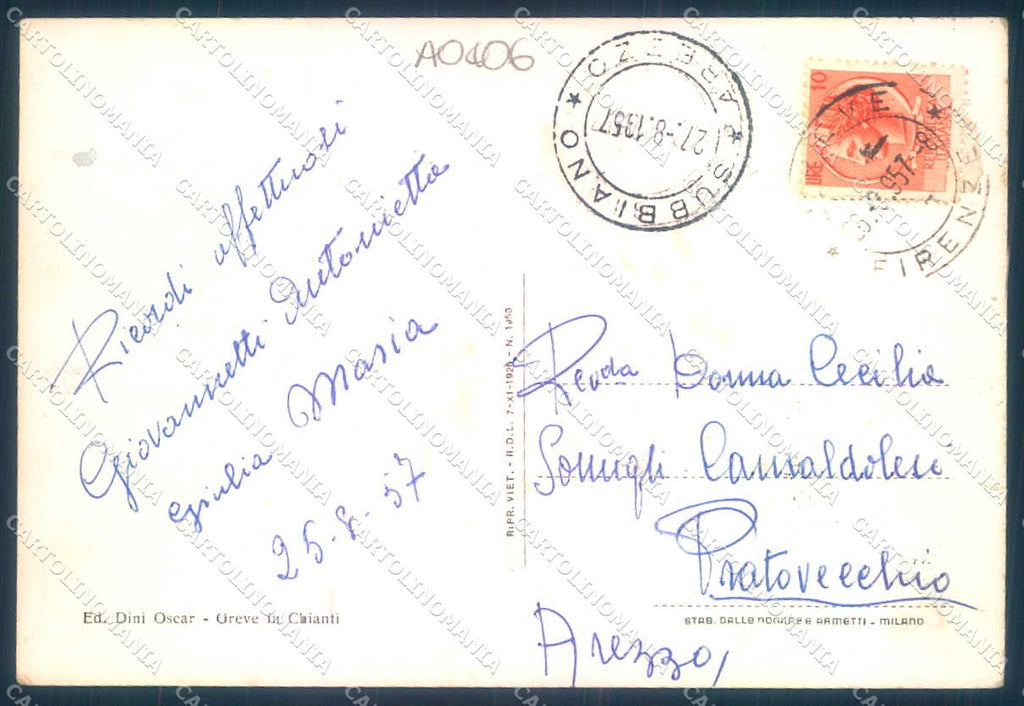 A0406
AREZZO
SUBBIANO
27.-8.1957
LIRE 10
GREVE
FIRENZE
Ricordi affettuosi
Giovannetti Antonietta
Giulia Maria
25-8-57
Revda Donna Cecilia
Somigli Camaldolese
Pratovecchio
Arezzo,
RIPR. VIET. - R.D.L. 7-XI-1925 - N. 1950
Ed. Dini Oscar - Greve in Chianti
STAB. DALLE NOGARE E ARMETTI - MILANO
CARTOLINOMANIA